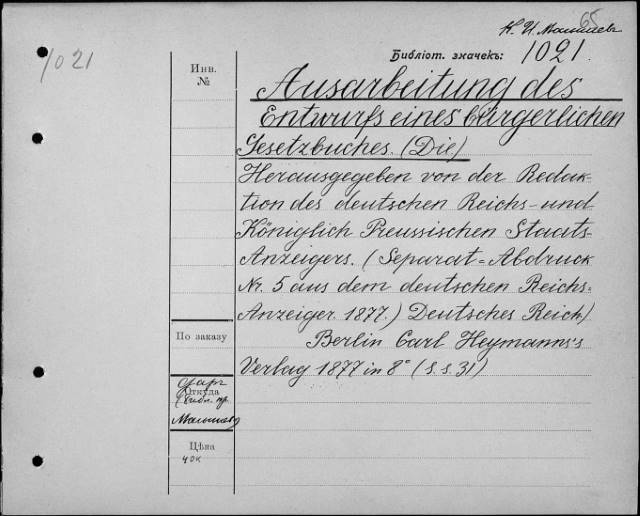 65
К. И. Малышев
1021
Библіот. значекъ: 1021.
Инв.
№
Ausarbeitung des
Entwurfs eines bürgerlichen
Gesetzbuches. (Die)
Herausgegeben von der Redak-
tion des deutschen Reichs- und
Königlich Preussischen Staats-
Anzeigers. (Separat=Abdruck
Nr. 5 aus dem deutschen Reichs-
Anzeiger. 1877.) Deutsches Reich)
По заказу
Berlin Carl Heymanns's
Verlag 1877 in 8° (S. s. 31)
Откуда
Малышев
Цѣна
40к